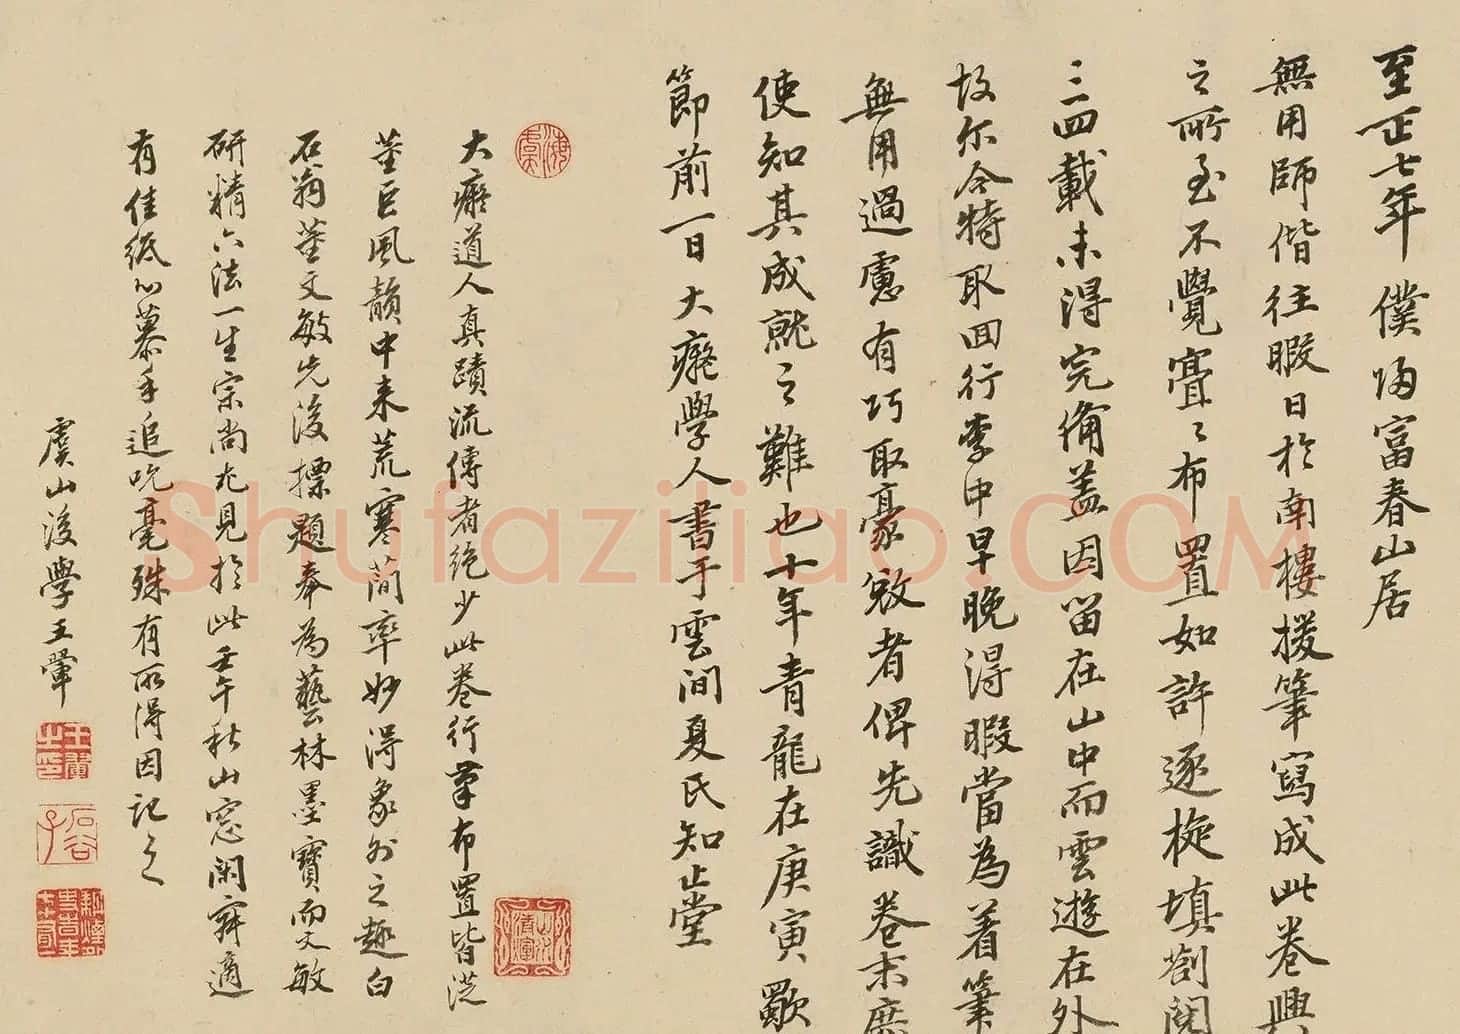 至正七年僕歸富春山居
無用師偕往暇日於南樓援筆寫成此卷興
之所至不覺亹亹布置如許逐旋填劄閱
三四載未得完備蓋因留在山中而雲遊在外
故尔今特取回行李中早晚得暇當為着筆
無用過慮有巧取豪敓者俾先識卷末庶
使知其成就之難也十年青龍在庚寅歜
節前一日大癡學人書于雲間夏氏知止堂
大癡道人真蹟流傳者絕少此卷行筆布置皆從
董巨風韻中来荒寒蕑率妙得象外之趣白
石翁董文敏先後摽題奉為藝林墨寶而文敏
研精六法一生宗尚尤見於此壬午秋山窓閑寂適
有佳紙心慕手追吮毫殊有所得因記之
虞山後學王翬
海虞
石谷子
Shufaziliao.COM